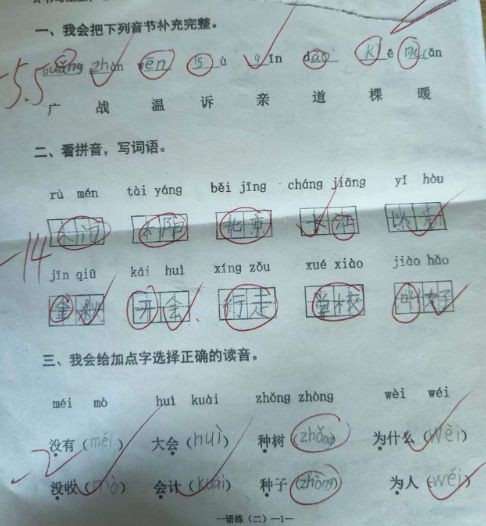 一、我会把下列音节补充完整。
guāng zhàn wēn s ù q īn dào k ē nuǎn
广 战 温 诉 亲 道 棵 暖
二、看拼音，写词语。
rù mén tài yáng běi jīng cháng jiāng yǐ hòu
门 太阳 北京 长江
jīn qiū kāi huì xíng zǒu xué xiào jiào hǎo
金秋 开会 行走 学校 叫好
三、我会给加点字选择正确的读音。
méi mò huì kuài zhǒng zhòng wèi wéi
没有（méi） 大会（huì） 种树（zhǒng） 为什么（wèi）
没收（mò） 会计（kuài） 种子（zhòng） 为人（wéi）
—语练（二）—1—
-5.5
-14
-2